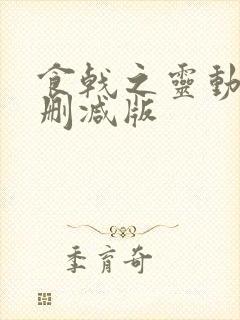 食戟之靈動
删减版
季育奇